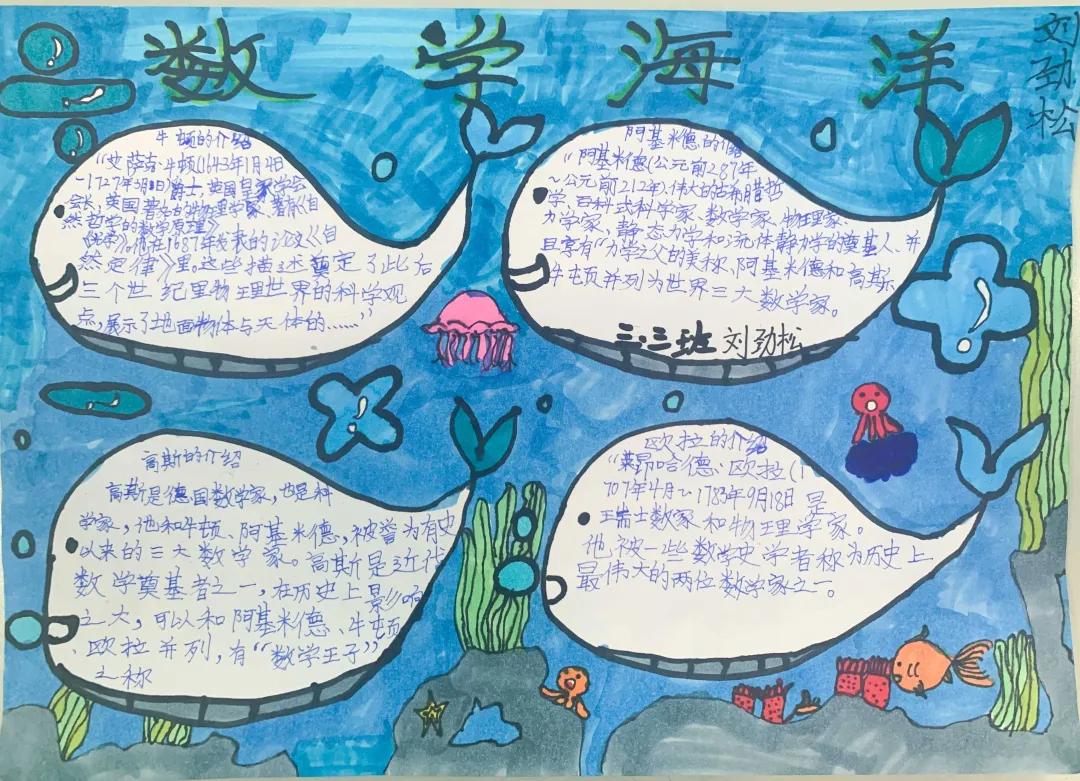 数学海洋
刘劲松
牛顿的介绍
“艾萨克·牛顿(1643年1月4日
~1727年3月31日)爵士,英国皇家学会
会长,英国著名的物理学家,著有《自
然哲学的数学原理》
《光学》。他在1687年发表的论文《自
然定律》里。这些描述奠定了此后
三个世纪里物理世界的科学观
点,展示了地面物体与天体的……”
阿基米德的介绍
“阿基米德(公元前287年
~公元前212年),伟大的古希腊哲
学、百科式科学家、数学家、物理家、
力学家,静态力学和流体静力学的奠基人、并
且享有“力学之父的美称、阿基米德和高斯、
牛顿并列为世界三大数学家。
三·三班 刘劲松
高斯的介绍
高斯是德国数学家,也是科
学家,他和牛顿、阿基米德,被誉为有史
以来的三大数学家。高斯是近代
数学奠基者之一,在历史上影响
之大,可以和阿基米德、牛顿
、欧拉并列,有“数学王子”
之称
欧拉的介绍
“莱昂哈德、欧拉(1
707年4月~1783年9月18日是
瑞士数家和物理学家。
他被一些数学史学者称为历史上
最伟大的两位数学家之一。